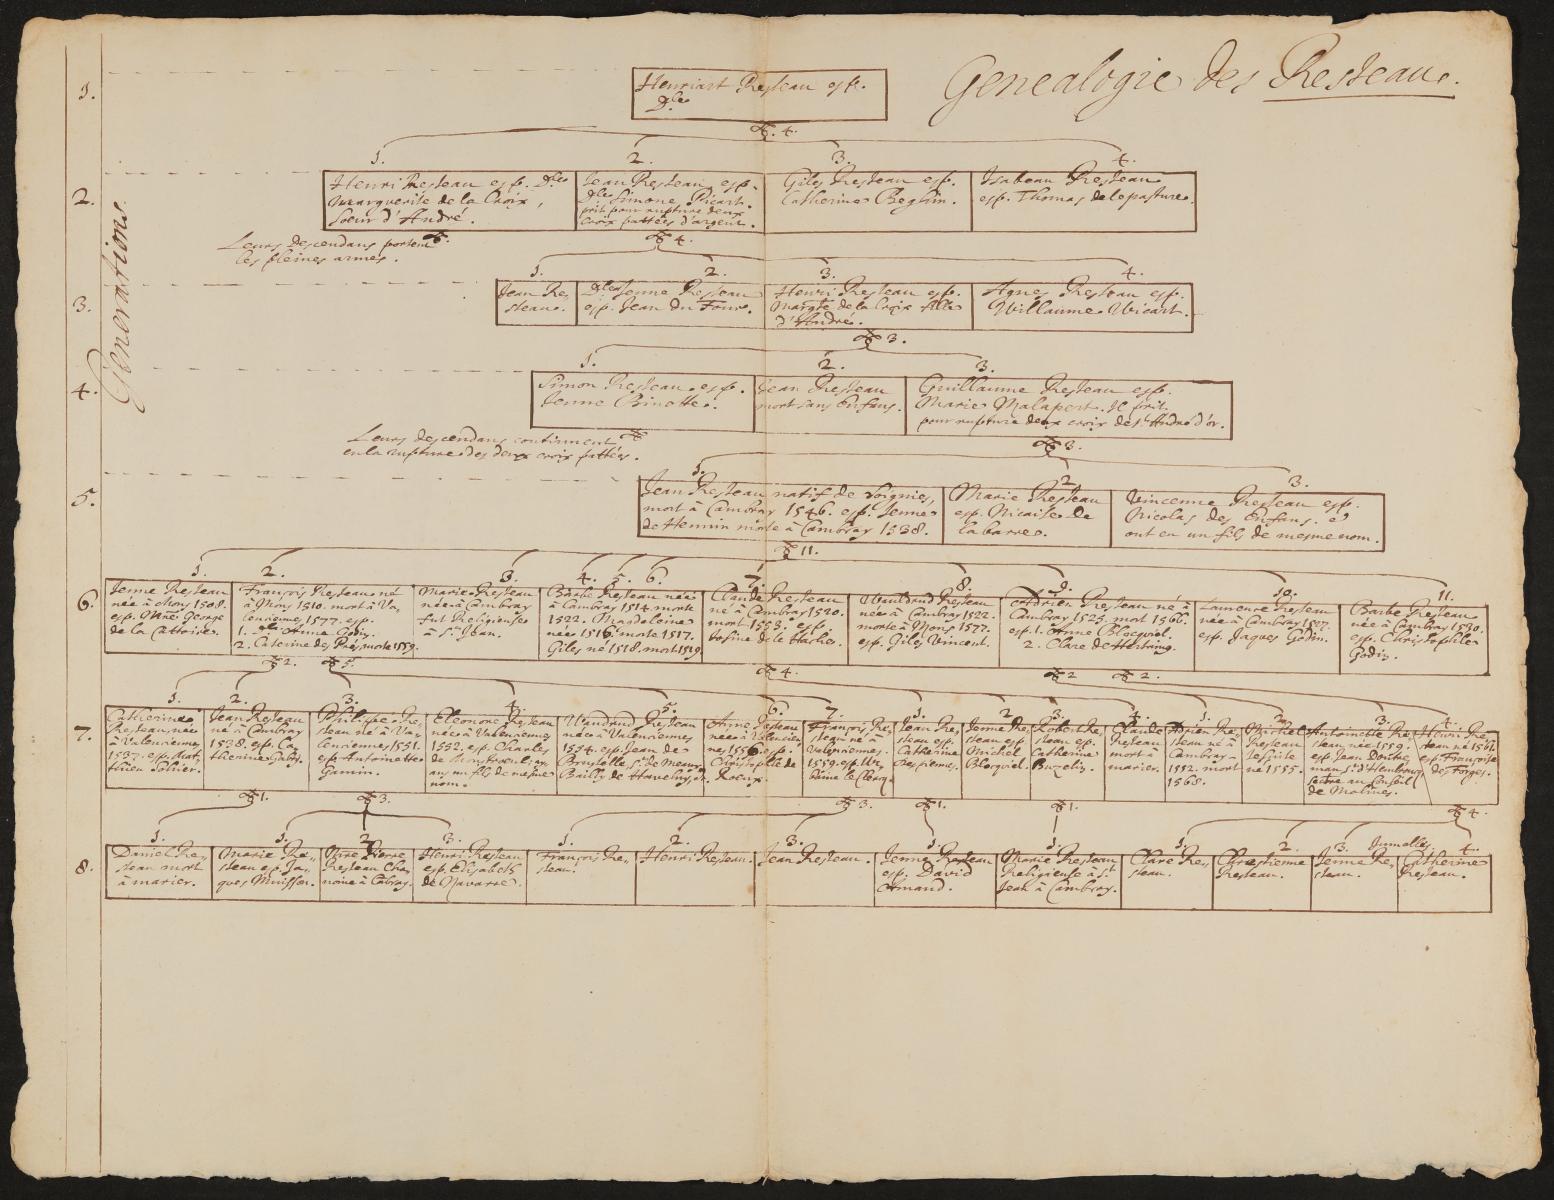 Genealogie des Resteau.
Generations.
1.
Henriart Resteau esp.
Dlle
4.
2.
1.
Henri Resteau esp. Dlle
Marguerite de la Croix,
soeur d'André.
2.
Jean Resteau esp.
Dlle Simone Picart.
prit pour rupture deux
croix pattées d'argent.
3.
Giles Resteau esp.
Catherine Beghin.
4.
Isabeau Resteau
esp. Thomas de lepasture.
Leurs descendans portent
les pleines armes.
4.
3.
1.
Jean Re-
steau.
2.
Dlle Jenne Resteau
esp. Jean du Four.
3.
Henri Resteau esp.
Margte de la Croix fille
d'André.
4.
Agnes Resteau esp.
Willaume Wicart.
3.
4.
1.
Simon Resteau esp.
Jenne Binotte.
2.
Jean Resteau
mort sans Enfans.
3.
Guillaume Resteau esp.
Marie Malapert. Il prit
pour rupture deux croix de St André d'or.
Leurs descendans continuent
en la rupture des deux croix pattées.
3.
5.
1.
Jean Resteau natif de Soignies,
mort à Cambray 1546. esp. Jenne
de Hennin morte à Cambray 1538.
2
Marie Resteau
esp. Nicaise de
labarre.
3.
Vincenne Resteau esp.
Nicolas des Enfans. et
ont eu un fils de mesme nom.
11.
6.
1.
Jenne Resteau
née à Mons 1508.
esp. Mre George
de la Cattoire.
2.
François Resteau né
à Mons 1510. mort à Va-
lenciennes 1577. esp.
1. Dlle Anne Godin.
2. Caterine des Prés morte 1559.
3.
Marie Resteau
née à Cambray
fut Religieuse
à St Jean.
4. 5. 6.
Barbe Resteau née
à Cambray 1514 morte
1522. Magdeleine
née 1516. morte 1517.
Giles né 1518. mort 1519.
7.
Claude Resteau
né à Cambray 1520.
mort 1553. esp.
8.
Wauldrud Resteau
née à Cambray 1522.
morte à Mons 1577.
esp. Giles Vincent.
9.
Adrien Resteau né à
Cambray 1525. mort 1566.
esp. 1. Anne Blocquiel.
2. Clare de Hertaing.
10.
Laurence Resteau
née à Cambray 1527.
esp. Jaques Godin.
11.
Barbe Resteau
née à Cambray 1530.
esp. Christophle
Godin.
2.
5.
4.
2
2.
7.
1.
Catherine
Resteau, née
à Valenciennes
1537. esp. Mat-
thieu Sohier.
2.
Jean Resteau
né à Cambray
1538. esp. Ca-
therine Gabry.
3.
Philippe Re-
steau né à Va-
lenciennes 1551.
esp. Antoinette
Gamin.
4.
Eleonore Resteau
née à Valenciennes
1552. esp. Charles
de Monstroeul: ay-
ans un fils de mesme
nom.
5.
Waudrud Resteau
née à Valenciennes
1554. esp. Jean de
Bruxelle, Sr de Meaux,
6.
Anne Resteau
née à Valencien-
nes 1556. esp.
Christophle de
Roeux.
7.
François Re-
steau né à
Valenciennes.
1559. esp. Ur-
sine le Clercq.
1.
Jean Re-
steau esp.
Catherine
Despiennes.
2
Jenne Re-
steau esp.
Michel
Blocquiel.
3.
Robert Re-
steau esp.
Catherine
Buzelin.
4.
Claude
Resteau
mort à
marier.
1.
Adrien Re-
steau né à
Cambray
1552. mort
1568.
2.
Michel
Resteau
Jesuite
né 1555.
3.
Antoinette Re-
steau née 1559.
esp. Jean
de Malines.
4.
Henri Re-
steau né 1561.
esp. Françoise
de Forges.
1.
3.
3.
1.
1.
4.
8.
1.
Daniel Re-
steau mort
à marier.
1.
Marie Re-
steau esp. Ja-
ques Muissart.
2
Sire Pierre
Resteau Cha-
noine à Cabray.
3.
Henri Resteau
esp. Elisabeth
de Navarre.
1.
François Re-
steau.
2.
Henri Resteau.
3.
Jean Resteau.
1.
Jenne Resteau
esp. David
Amand.
1.
Marie Resteau
Religieuse à St
Jean à Cambray.
1.
Clare Re-
steau.
2.
Chrestienne
Resteau.
3. Jumelles. 4.
Jenne Re-
steau.
Catherine
Resteau.